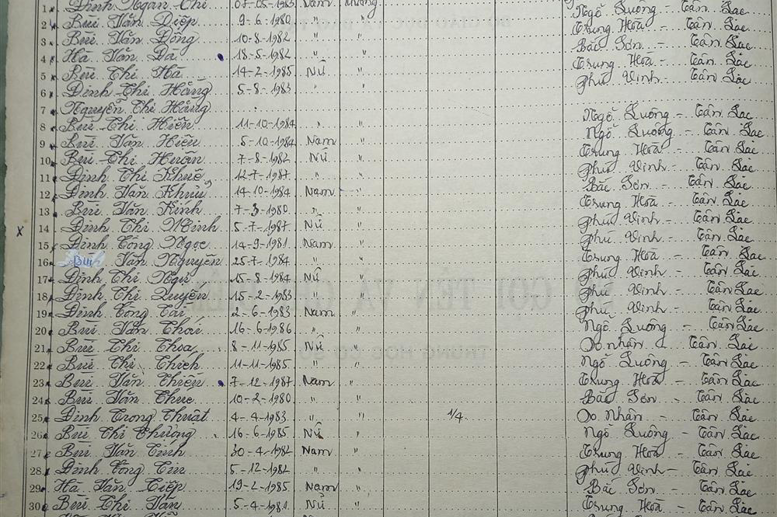 1 Đinh Ngân Chi 07-05-1983 Nam Mường Ngổ Luông - Tân Lạc
2 Bùi Văn Diệp 9-6-1980 " " Trung Hoà - Tân Lạc
3 Bùi Văn Dông 10-8-1982 " " Bắc Sơn - Tân Lạc
4 Hà Văn Dã 18-5-1982 " " Trung Hoà - Tân Lạc
5 Bùi Thị Hà 14-2-1985 Nữ " Phú Vinh - Tân Lạc
6 Đinh Thị Hằng 5-8-1983 " "
7 Nguyễn Thị Hằng
8 Bùi Thị Hiền 11-10-1984 " " Ngổ Luông - Tân Lạc
9 Bùi Văn Hiếu 5-10-1984 Nam " Ngổ Luông - Tân Lạc
10 Bùi Thị Huấn 7-8-1982 Nữ " Trung Hoà - Tân Lạc
11 Đinh Thị Khuê 12-7-1987 " " Phú Vinh - Tân Lạc
12 Đinh Văn Khuỷ 14-10-1984 Nam " Bắc Sơn - Tân Lạc
13 Bùi Văn Kính 7-3-1980 " " Trung Hoà - Tân Lạc
x 14 Đinh Thị Minh 5-7-1987 Nữ " Phú Vinh - Tân Lạc
15 Đinh Công Ngọc 14-9-1981 Nam " Phú Vinh - Tân Lạc
16 Bùi Văn Nguyên 25-7-1984 " " Trung Hoà - Tân Lạc
17 Đinh Thị 15-8-1984 Nữ " Phú Vinh - Tân Lạc
18 Đinh Thị Quyên 15-2-1983 " " Phú Vinh - Tân Lạc
19 Đinh Công Tài 2-6-1983 Nam " Phú Vinh - Tân Lạc
20 Bùi Văn Thái 16-6-1986 " " Ngổ Luông - Tân Lạc
21 Bùi Thị Thoa 8-11-1985 Nữ " Do Nhân - Tân Lạc
22 Bùi Thị Thích 11-11-1985 " " Ngổ Luông - Tân Lạc
23 Bùi Văn Thiện 7-12-1987 Nam " Trung Hoà - Tân Lạc
24 Bùi Văn Thức 10-2-1980 " " Bắc Sơn - Tân Lạc
25 Đinh Trọng Thuật 4-4-1983 " " 1/4 Do Nhân - Tân Lạc
26 Bùi Thị Thương 16-6-1985 Nữ " Ngổ Luông - Tân Lạc
27 Bùi Văn Tình 30-4-1982 Nam " Trung Hoà - Tân Lạc
28 Đinh Công Tín 5-12-1982 " " Phú Vinh - Tân Lạc
29 Hà Văn Tiếp 19-2-1985 Nam " Bắc Sơn - Tân Lạc
30 Bùi Thị Vấn 5-4-1981 Nữ " Trung Hoà - Tân Lạc